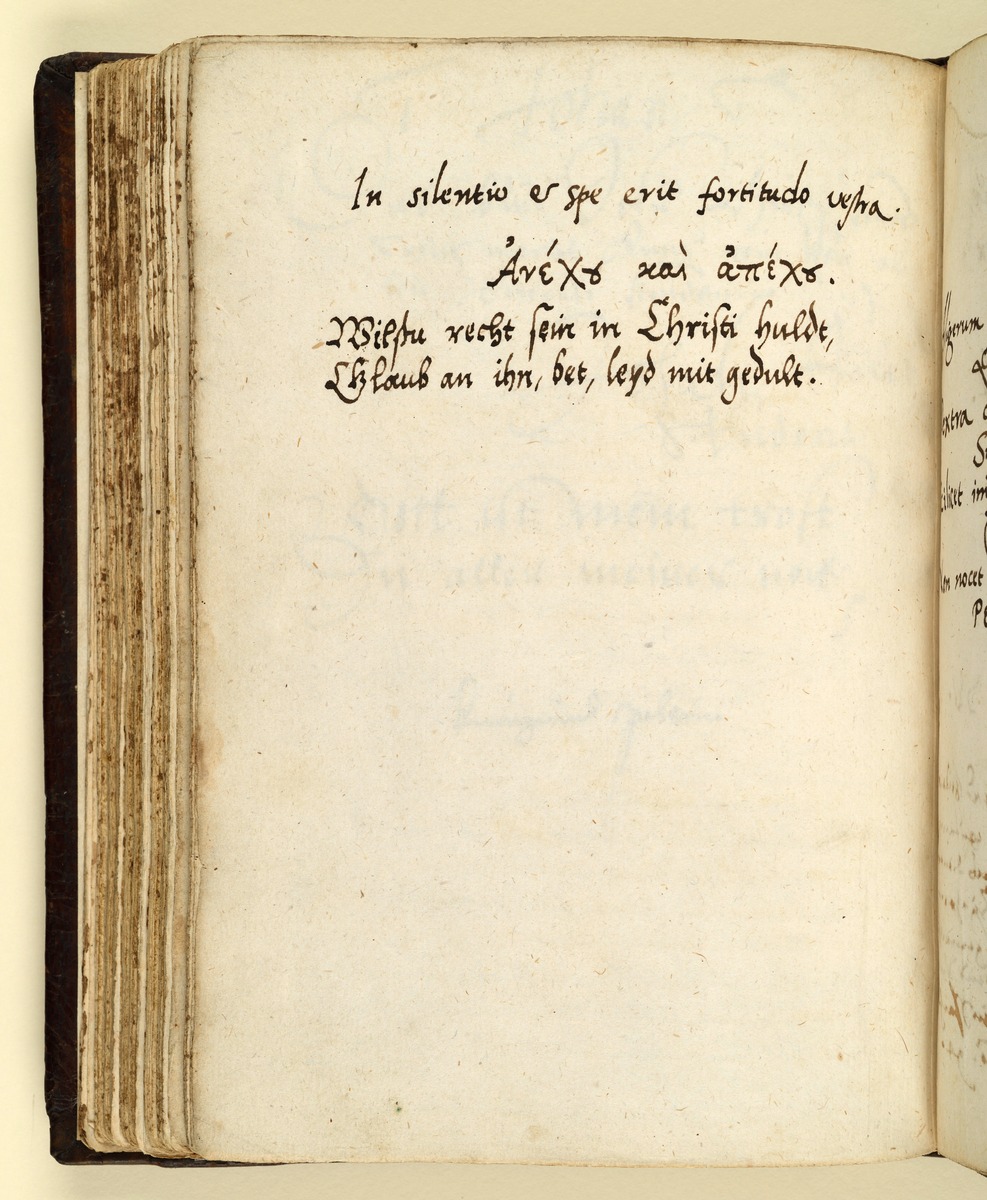 In silentio & spe erit fortitudo vestra.
Ἀνέχου καὶ ἀπέχου.
Wilstu recht sein in Christi huldt,
Glaub an ihn, bet, leyd mit gedult.
extra
nocet